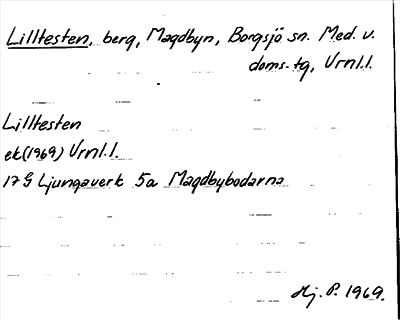 Lilltesten, berg, Magdbyn, Borgsjö sn. Med. v.
doms. tg, Vrnl.l.
Lilltesten
ek(1969) Vrnl.l.
17 G Ljungaverk 5a Magdbybodarna
Hj. P. 1969.